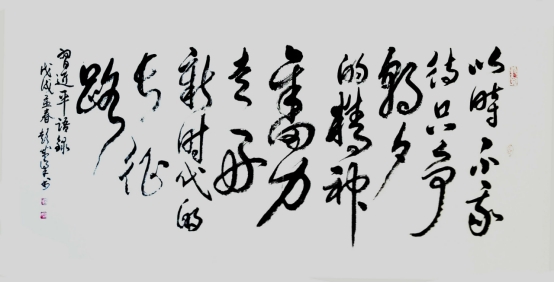 以时不我
待只争
朝夕
的精神
奋力
走好
新时代的
长征
路
习近平语录
戊戌立春